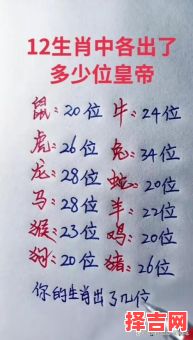 12生肖中各出了
多少位皇帝
鼠:20位 牛:24位
虎:26位 兔:34位
龙:28位 蛇:20位
马:28位 羊:22位
猴:23位 鸡:20位
狗:20位 猪:26位
你的生肖出了几位
择吉网